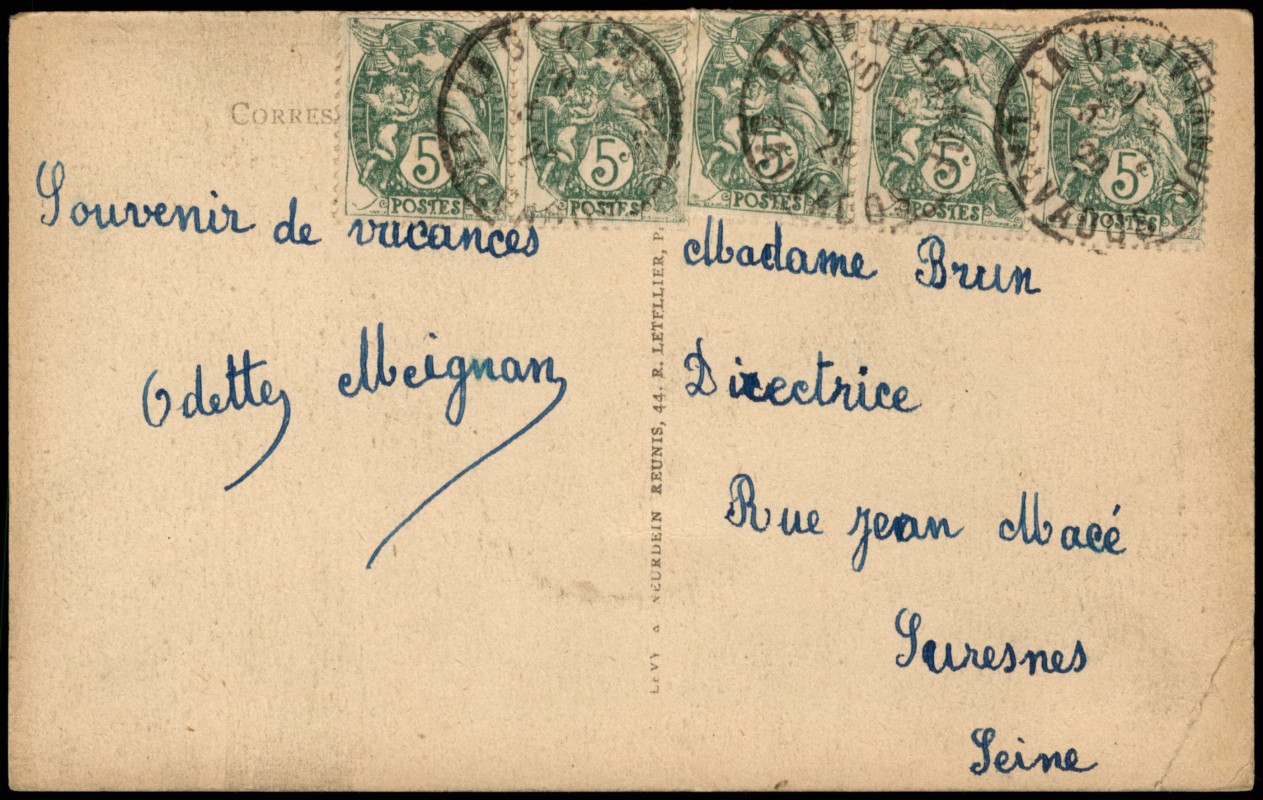 CORRES
5c 5c 5c 5c 5c
POSTES POSTES POSTES POSTES POSTES
LA DELIVRANDE
CALVADOS
Souvenir de vacances
Odette Meignan
LEVY & NEURDEIN REUNIS, 44, R. LETELLIER, P
Madame Brun
Directrice
Rue Jean Macé
Suresnes
Seine